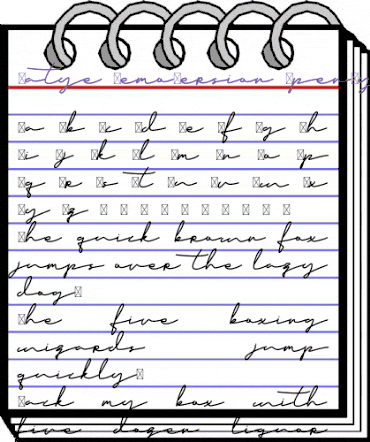 □atye □emo□ersion
□a □b □c □d □e □f □g □h
□i □j □k □l □m □n □o □p
□q □r □s □t □u □v □w □x
□y □z □ □ □ □ □ □ □ □ □ □
□he quick brown fox
jumps over the lazy
dog□
□he five boxing
wizards jump
quickly□
□ack my box with
five dozen liquor